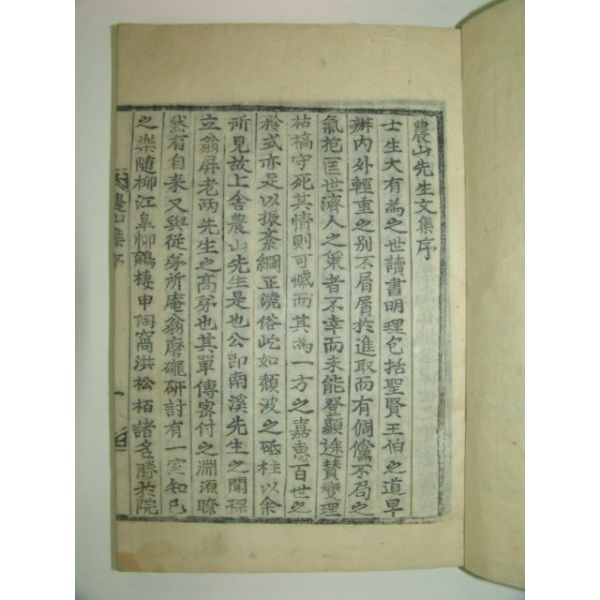 農山先生文集序
士生大有為之世讀書明理包括聖賢王伯之道早
辦內外輕重之別不屑屑於進取而有倜儻不局之
氣抱匡世濟人之策者不幸而未能登顯途贊燮理
枯槁守死其情則可慽而其為一方之嘉惠百世之
矜式亦足以振紊綱正澆俗屹如頹波之砥柱以余
所見故上舍農山先生是也公即南溪先生之聞孫
立翁屏老兩先生之高弟也其單傳密付之淵源瞭
然有自来又與從弟所庵翁磨礲硏討有一室知己
之樂随柳江皐柳鶴棲申陶窩洪松栢諸名勝於院
農山集序
一